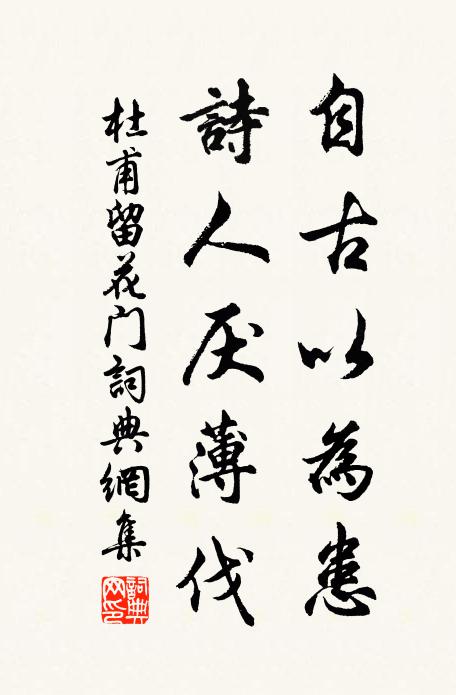 自古以為患
詩人厌薄伐
杜甫留花门詞典網集
詞典网印